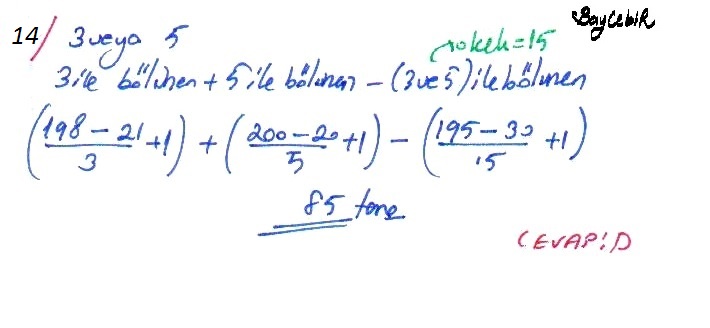 BayCebir
14/ 3 veya 5
→ okek=15
3 ile bölünen + 5 ile bölünen - (3 ve 5) ile bölünen
((198 - 21)/3 + 1) + ((200 - 20)/5 + 1) - ((195 - 30)/15 + 1)
85 tane
CEVAP: D